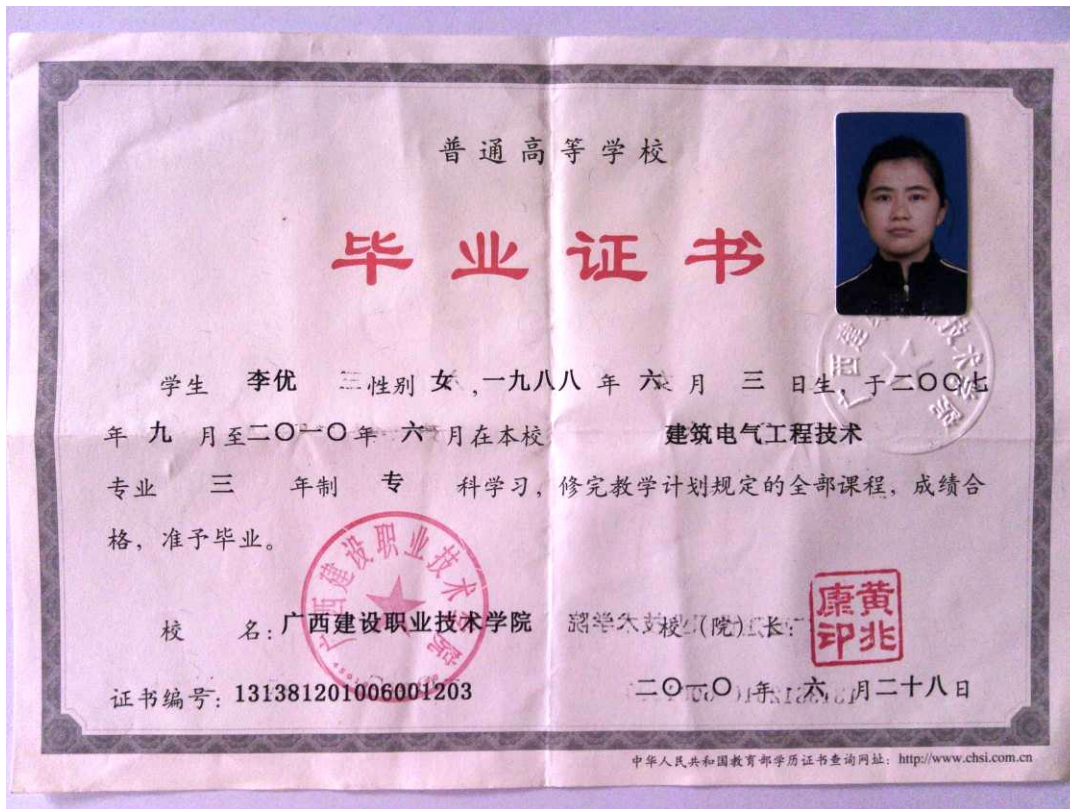 普通高等学校
毕业证书
学生 李优 性别 女，一九八八 年 六 月 三 日生，于二〇〇七
年 九 月至二〇一〇年 六 月在本校 建筑电气工程技术
专业 三 年制 专 科学习，修完教学计划规定的全部课程，成绩合
格，准予毕业。
广西建设职业技术学院
校 名：广西建设职业技术学院 校（院）长：
黄兆康印
证书编号：131381201006001203 二〇一〇 年 六 月二十八日
中华人民共和国教育部学历证书查询网址：http://www.chsi.com.cn